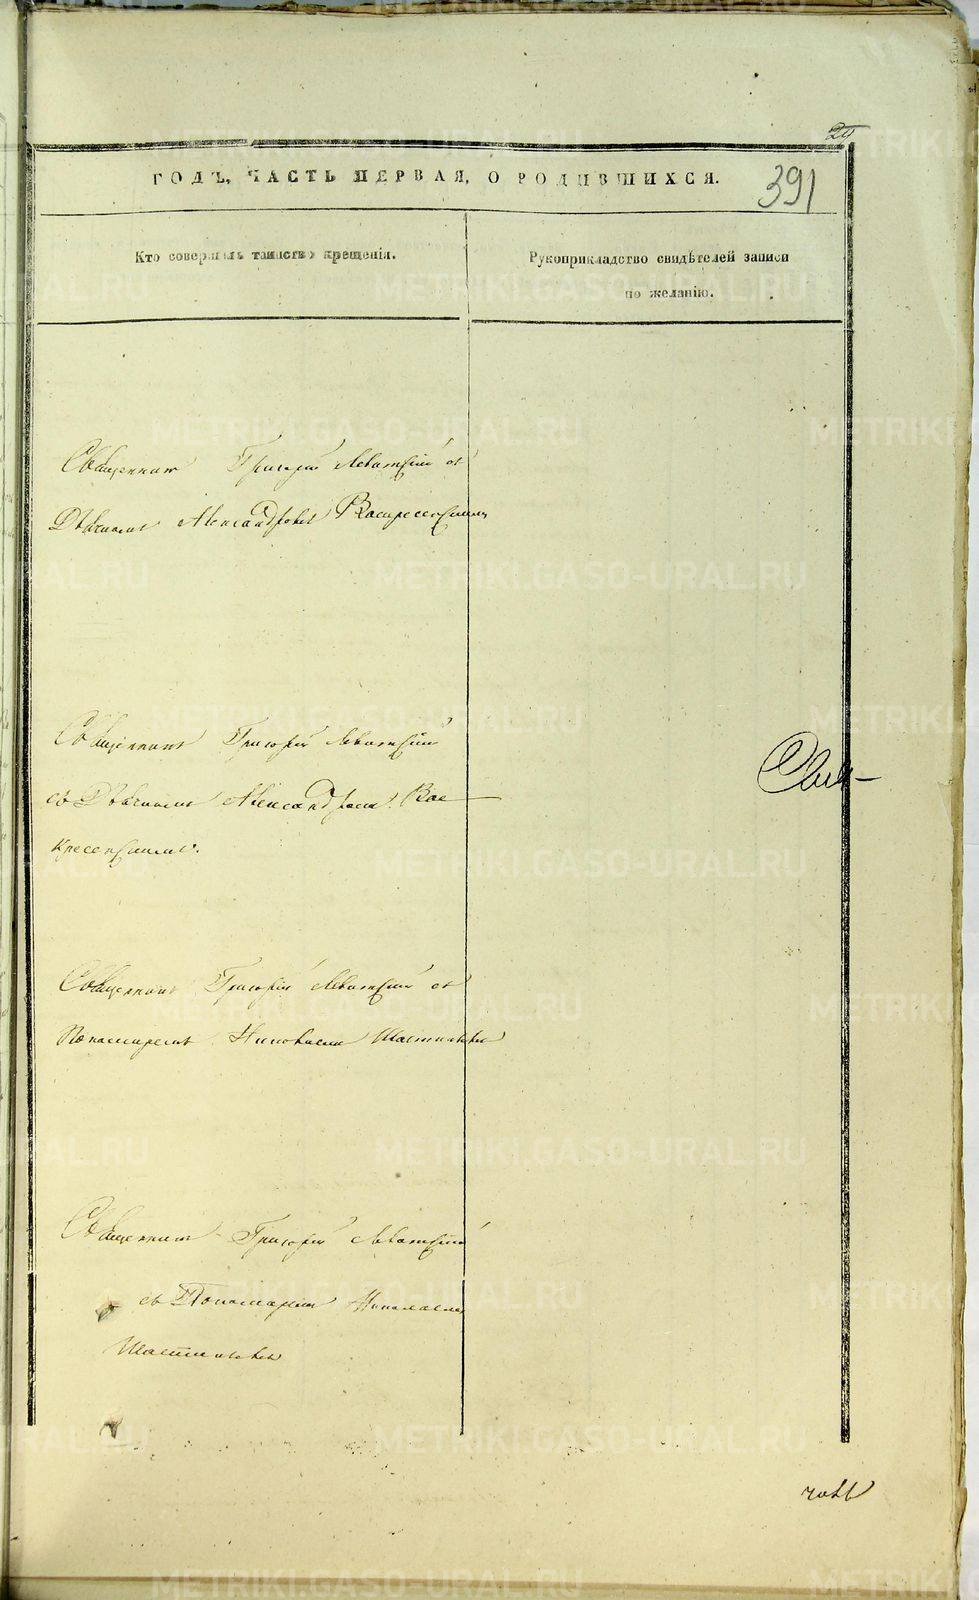 24
ГОДЪ, ЧАСТЬ ПЕРВАЯ, О РОДИВШИХСЯ.
391
Кто совершалъ таинство крещенія.
Рукоприкладство свидѣтелей записи
по желанію.
Священникъ Григорій Левитскій съ
Дьячкомъ Александромъ Воскресенскимъ
Священникъ Григорій Левитскій
съ Дьячкомъ Александромъ Вос-
кресенскимъ.
Священникъ Григорій Левитскій съ
Пономаремъ Николаемъ
Священникъ Григорій Левитскій
съ Пономаремъ Николаемъ
METRIKI.GASO-URAL.RU